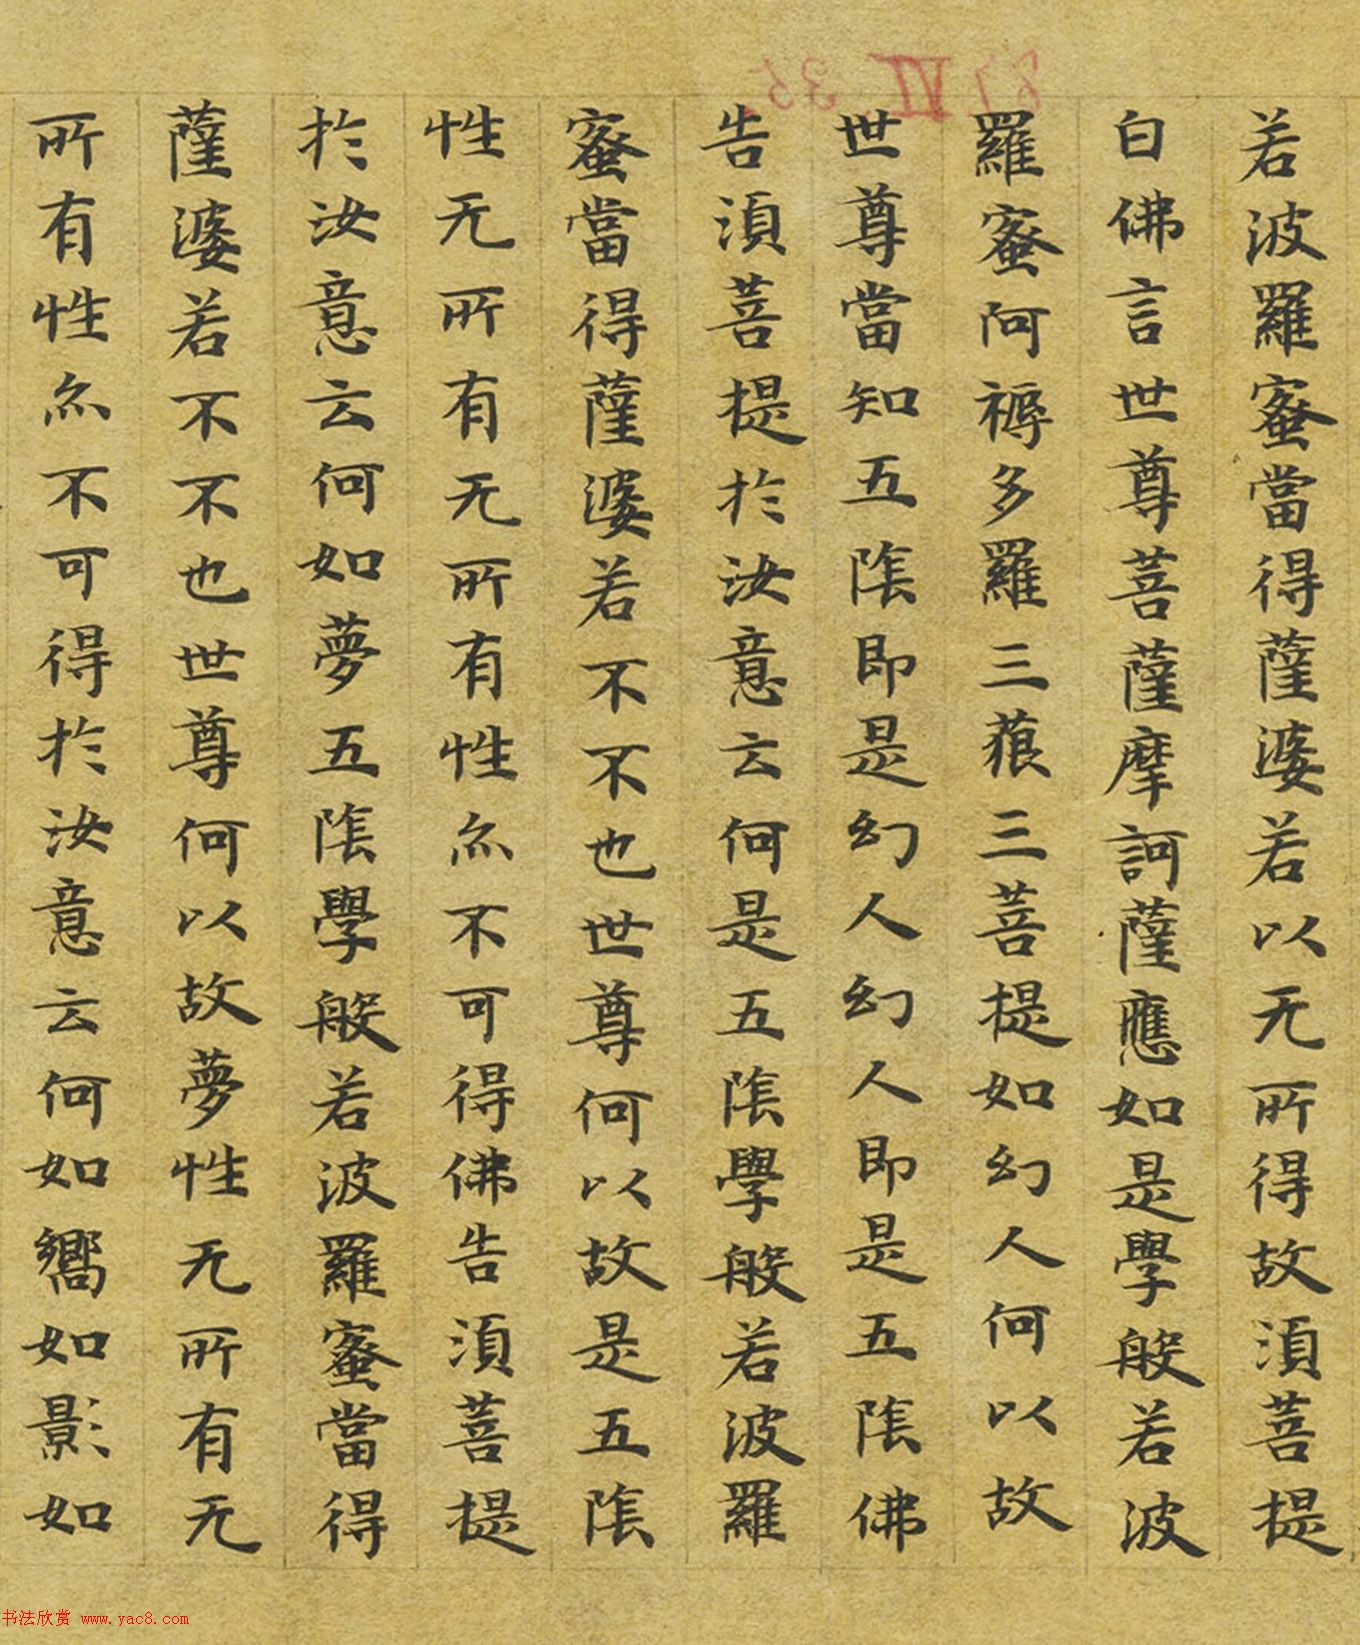 若波羅蜜當得薩婆若以无所得故須菩提
白佛言世尊菩薩摩訶薩應如是學般若波
羅蜜阿耨多羅三藐三菩提如幻人何以故
世尊當知五陰即是幻人幻人即是五陰佛
告須菩提於汝意云何是五陰學般若波羅
蜜當得薩婆若不不也世尊何以故是五陰
性无所有无所有性亦不可得佛告須菩提
於汝意云何如夢五陰學般若波羅蜜當得
薩婆若不不也世尊何以故夢性无所有无
所有性亦不可得於汝意云何如嚮如影如
书法欣赏 www.yac8.com